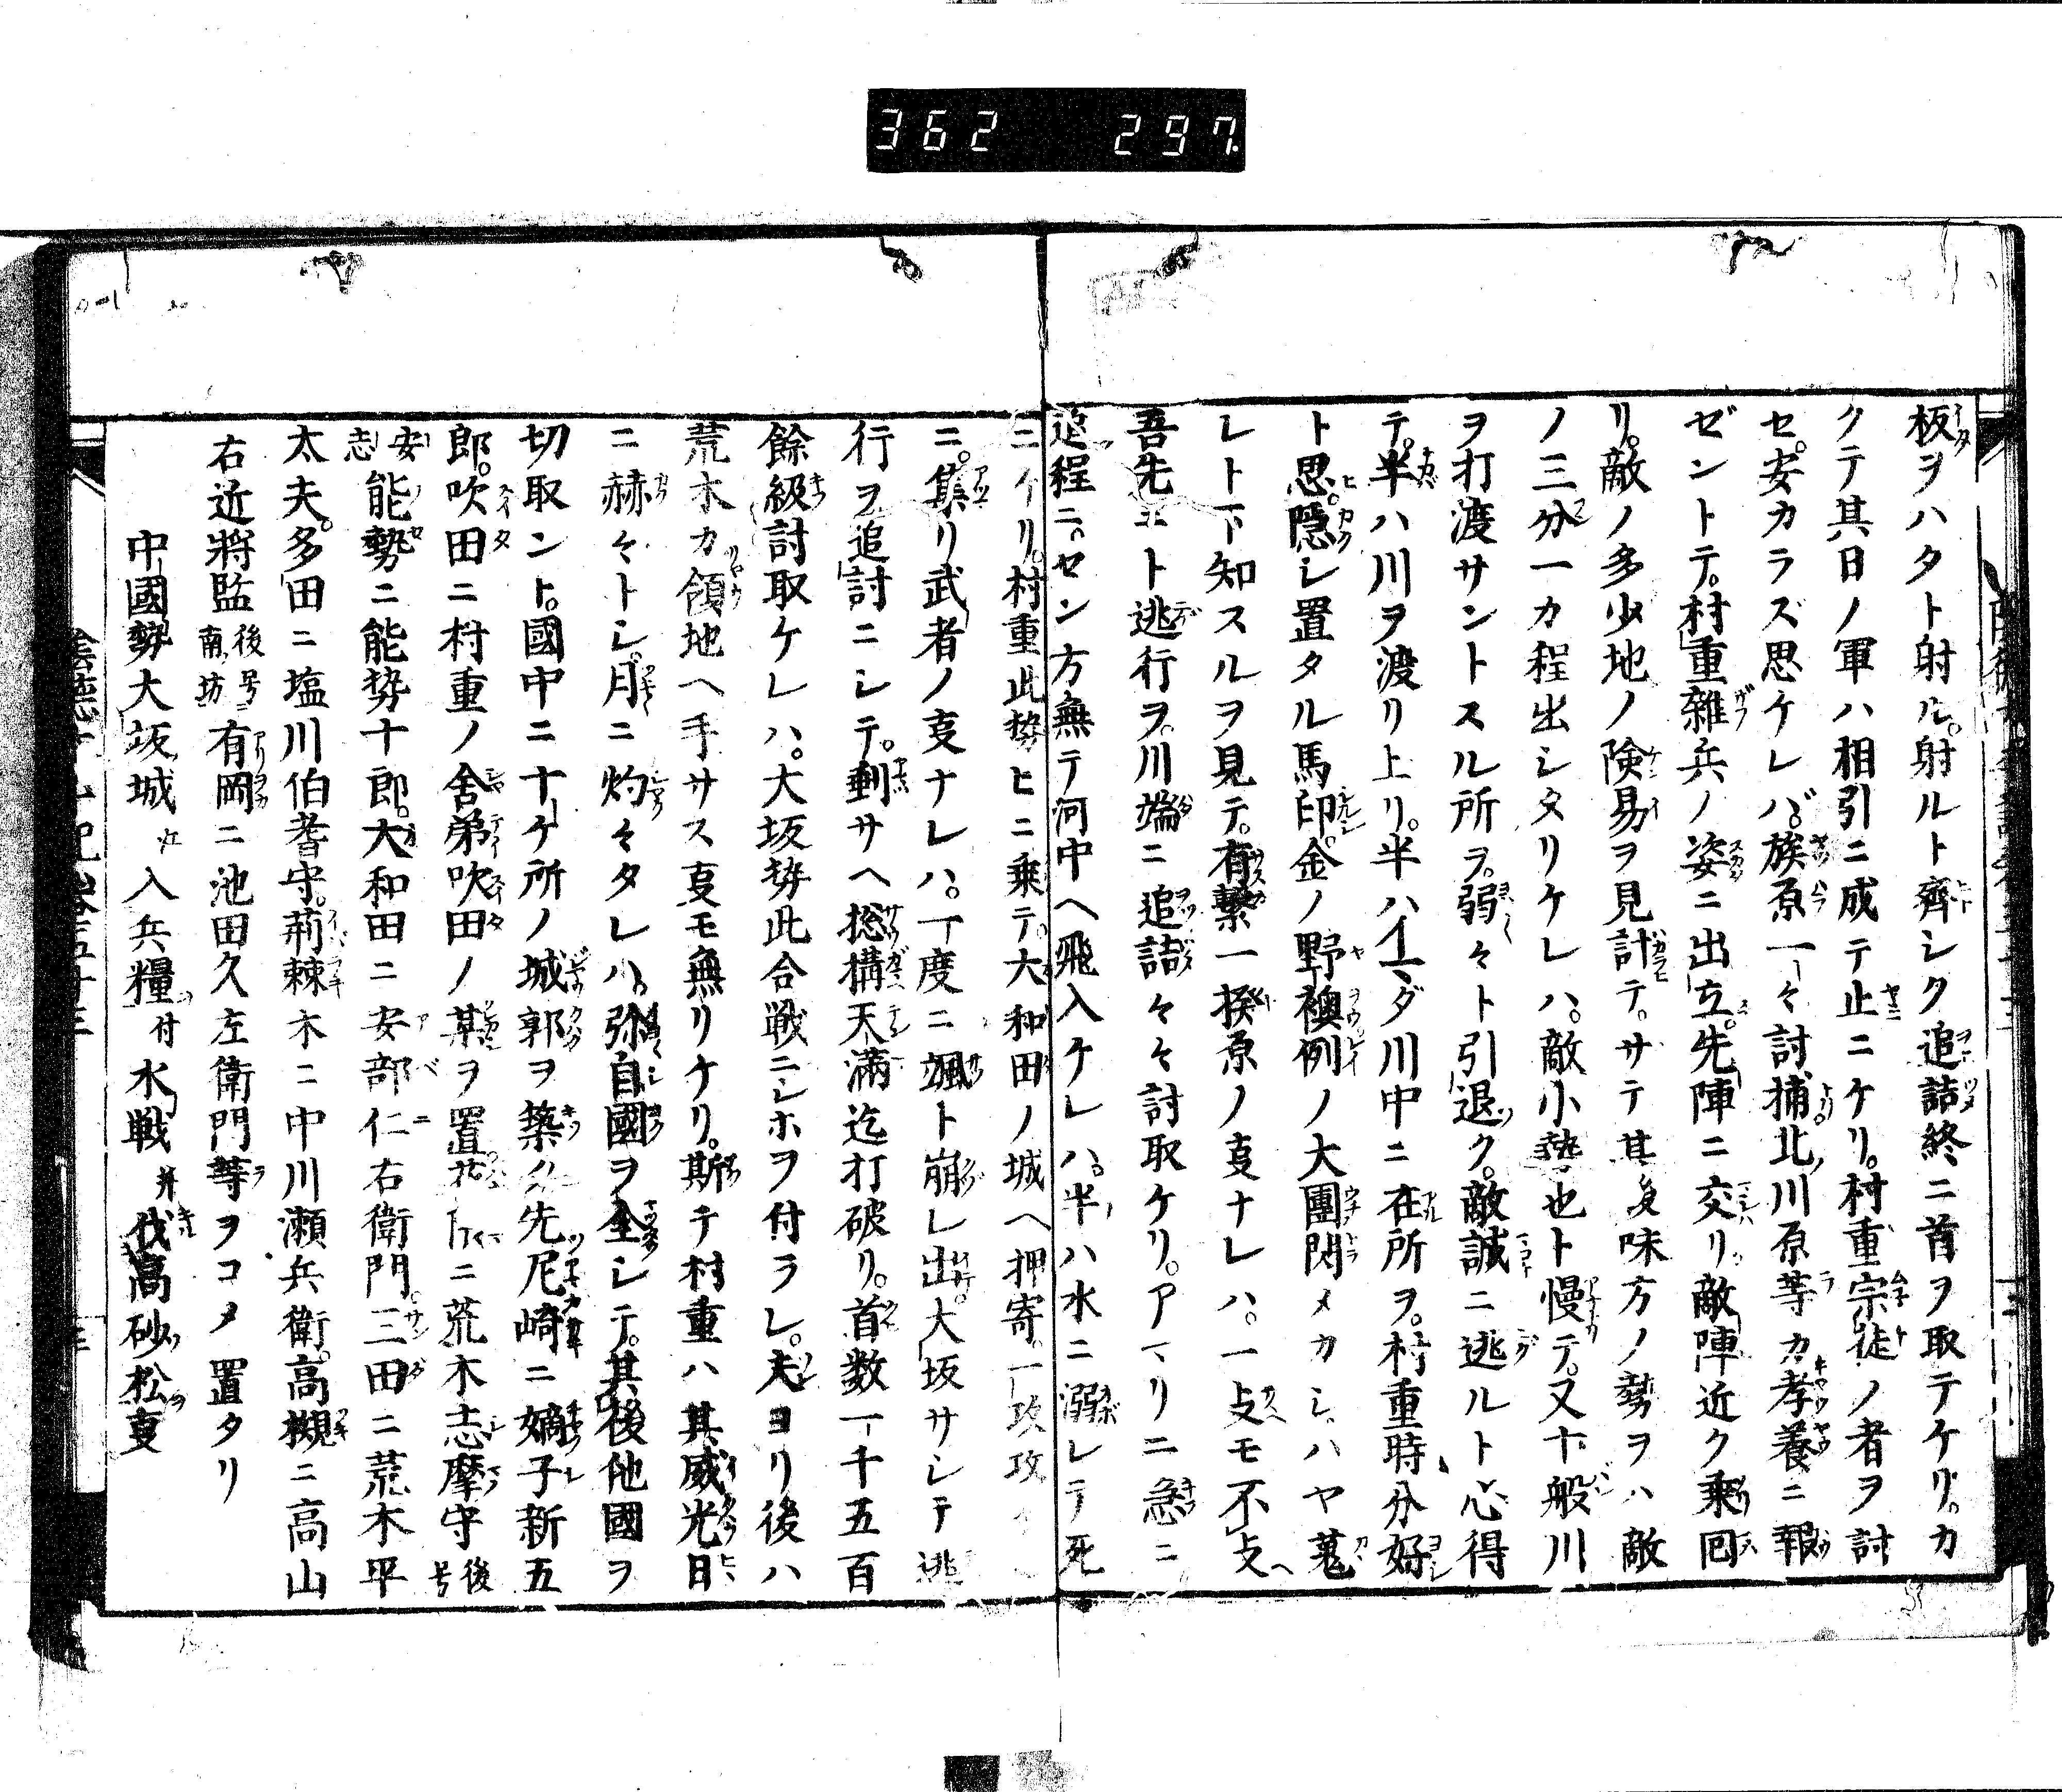 362 297
板ヲハタト射ル。射ルト齊シク追詰終ニ首ヲ取テケリ。カ
クテ其日ノ軍ハ相引ニ成テ止ニケリ。村重宗徒ノ者ヲ討
セ。安カラズ思ケレバ。族原一々討捕北川原等カ孝養ニ報
ゼントテ。村重雑兵ノ姿ニ出立。先陣ニ交リ敵陣近ク乗回
リ。敵ノ多少地ノ険易ヲ見計テ。サテ其身味方ノ勢ヲハ敵
ノ三分一カ程出シタリケレハ。敵小勢也ト慢テ。又十般川
ヲ打渡サントスル所ヲ。弱々ト引退ク。敵誠ニ逃ルト心得
テ。半ハ川ヲ渡リ上リ。半ハイマダ川中ニ在所ヲ。村重時分好
ト思。隠シ置タル馬印。金ノ野襖例ノ大團閃メカシ。ハヤ蒐
レト下知スルヲ見テ。有繋一揆原ノ叓ナレハ。一支モ不支
吾先ニト逃行ヲ。川端ニ追詰々々討取ケリ。アマリニ急ニ
追程ニ。セン方無テ河中ヘ飛入ケレハ。半ハ水ニ溺レテ死
ニケリ。村重此勢ヒニ乗テ。大和田ノ城ヘ押寄。一攻攻
ニ。集リ武者ノ叓ナレハ。一度ニ颯ト崩レ出。大坂サシテ逃
行ヲ追討ニシテ。剰サヘ捴構天満迄打破リ。首数一千五百
餘級討取ケレハ。大坂勢此合戦ニシホヲ付ラレ。夫ヨリ後ハ
荒木カ領地ヘ手サス叓モ無リケリ。斯テ村重ハ其威光日
ニ赫々トシ。月ニ灼々タレハ。弥自國ヲ全シテ。其後他國ヲ
切取ント。國中ニ十ケ所ノ城郭ヲ築ク先尼崎ニ嫡子新五
郎。吹田ニ村重ノ舎弟吹田ノ某ヲ置花ニ荒木志摩守後号
安志能勢ニ能勢十郎。大和田ニ安部仁右衛門。三田ニ荒木平
太夫。多田ニ塩川伯耆守。荊棘木ニ中川瀬兵衛。高槻ニ高山
右近将監後号南坊有岡ニ池田久左衛門等ヲコメ置タリ
中國勢大坂城江入兵糧付水戦并伐高砂松叓